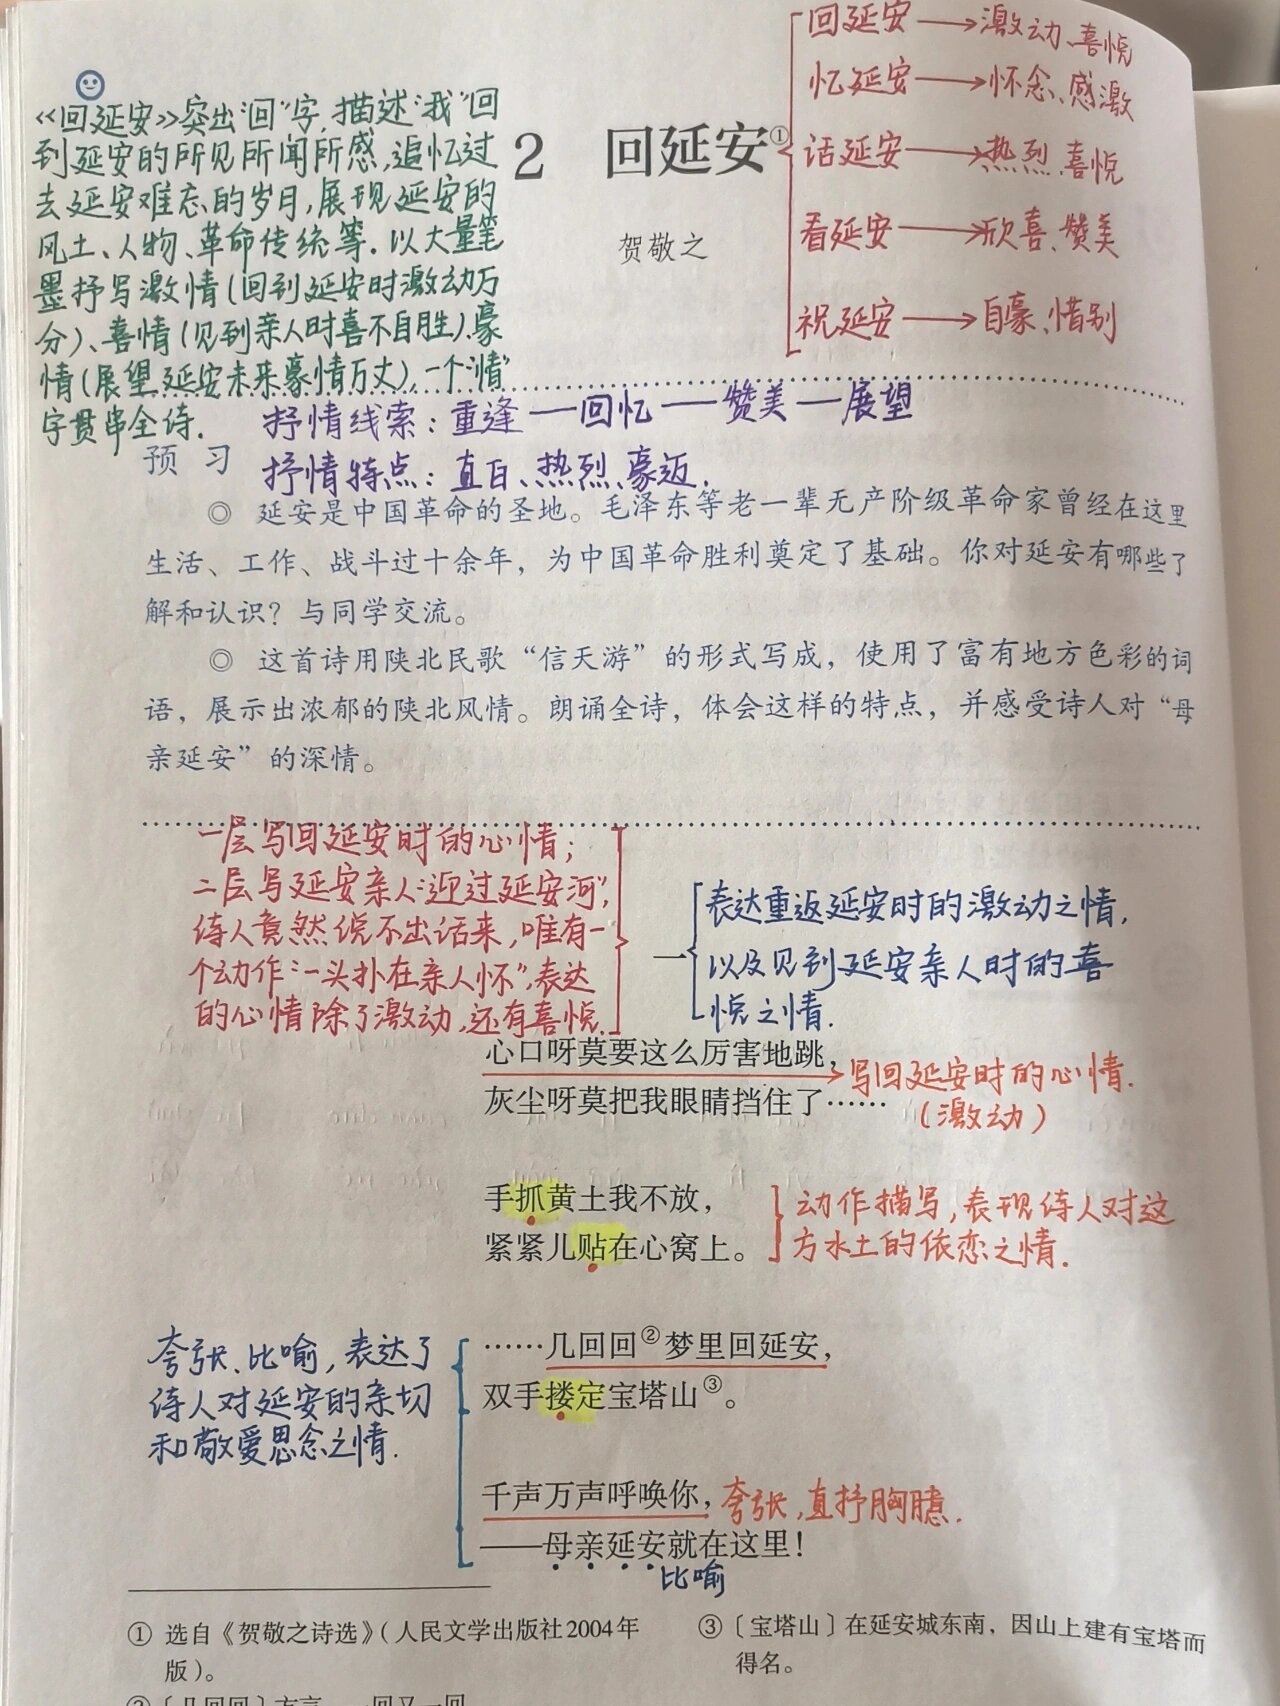 《回延安》突出“回”字,描述“我”回
到延安的所见所闻所感,追忆过
去延安难忘的岁月,展现延安的
风土、人物、革命传统等.以大量笔
墨抒写激情(回到延安时激动万
分)、喜情(见到亲人时喜不自胜)、豪
情(展望延安未来豪情万丈),一个“情”
字贯串全诗.
2 回延安①
贺敬之
回延安→激动、喜悦
忆延安→怀念、感激
话延安→热烈、喜悦
看延安→欣喜、赞美
祝延安→自豪、惜别
抒情线索:重逢—回忆—赞美—展望
预 习
抒情特点:直白、热烈、豪迈.
◎ 延安是中国革命的圣地。毛泽东等老一辈无产阶级革命家曾经在这里
生活、工作、战斗过十余年，为中国革命胜利奠定了基础。你对延安有哪些了
解和认识？与同学交流。
◎ 这首诗用陕北民歌“信天游”的形式写成，使用了富有地方色彩的词
语，展示出浓郁的陕北风情。朗诵全诗，体会这样的特点，并感受诗人对“母
亲延安”的深情。
一层写回延安时的心情;
二层写延安亲人“迎过延安河”,
诗人竟然说不出话来,唯有一
个动作“一头扑在亲人怀”,表达
的心情除了激动,还有喜悦.
一
表达重返延安时的激动之情,
以及见到延安亲人时的喜
悦之情.
心口呀莫要这么厉害地跳，
写回延安时的心情.
灰尘呀莫把我眼睛挡住了……
(激动)
手抓黄土我不放，
紧紧儿贴在心窝上。
动作描写,表现诗人对这
方水土的依恋之情.
夸张、比喻,表达了
诗人对延安的亲切
和敬爱思念之情.
……几回回②梦里回延安，
双手搂定宝塔山③。
千声万声呼唤你，
夸张,直抒胸臆.
——母亲延安就在这里！
比喻
① 选自《贺敬之诗选》（人民文学出版社2004年
版）。
②〔几回回〕方言，一回又一回
③〔宝塔山〕在延安城东南，因山上建有宝塔而
得名。